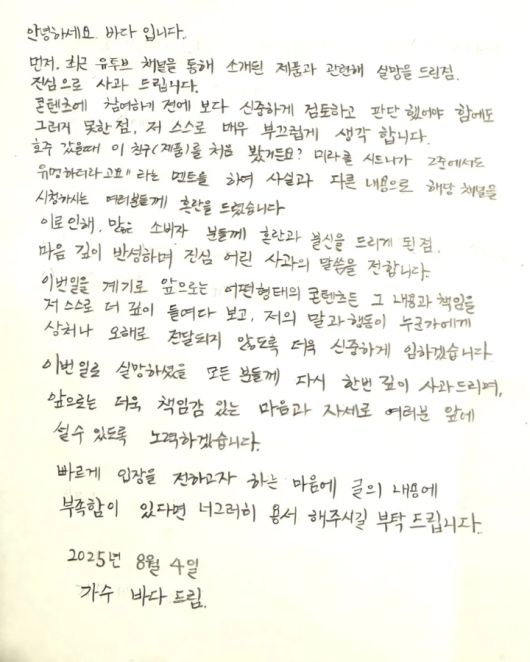 안녕하세요 바다 입니다.
먼저, 최근 유투브 채널을 통해 소개된 제품과 관련해 실망을 드린점.
진심으로 사과 드립니다.
콘텐츠에 참여하기 전에 보다 신중하게 검토하고 판단 했어야 함에도
그러지 못한점, 저 스스로 매우 부끄럽게 생각 합니다.
호주 갔을때 이 친구(제품)를 처음 봤거든요? 미라클 시드니가 호주에서도
유명하더라고요" 라는 멘트를 하여 사실과 다른 내용으로 해당 채널을
시청하시는 여러분들께 혼란을 드렸습니다
이로인해, 많은 소비자 분들께 혼란과 불신을 드리게 된점.
마음 깊이 반성하며 진심 어린 사과의 말씀을 전합니다.
이번일을 계기로 앞으로는 어떤형태의 콘텐츠든 그 내용과 책임을
저 스스로 더 깊이 들여다 보고, 저의 말과 행동이 누군가에게
상처나 오해로 전달되지 않도록 더욱 신중하게 임하겠습니다
이번 일로 실망하셨을 모든 분들께 다시 한번 깊이 사과드리며,
앞으로는 더욱 책임감 있는 마음과 자세로 여러분 앞에
설수 있도록 노력하겠습니다.
빠르게 입장을 전하고자 하는 마음에 글의 내용에
부족함이 있다면 너그러히 용서 해주시길 부탁 드립니다.
2025년 8월 4일
가수 바다 드림.